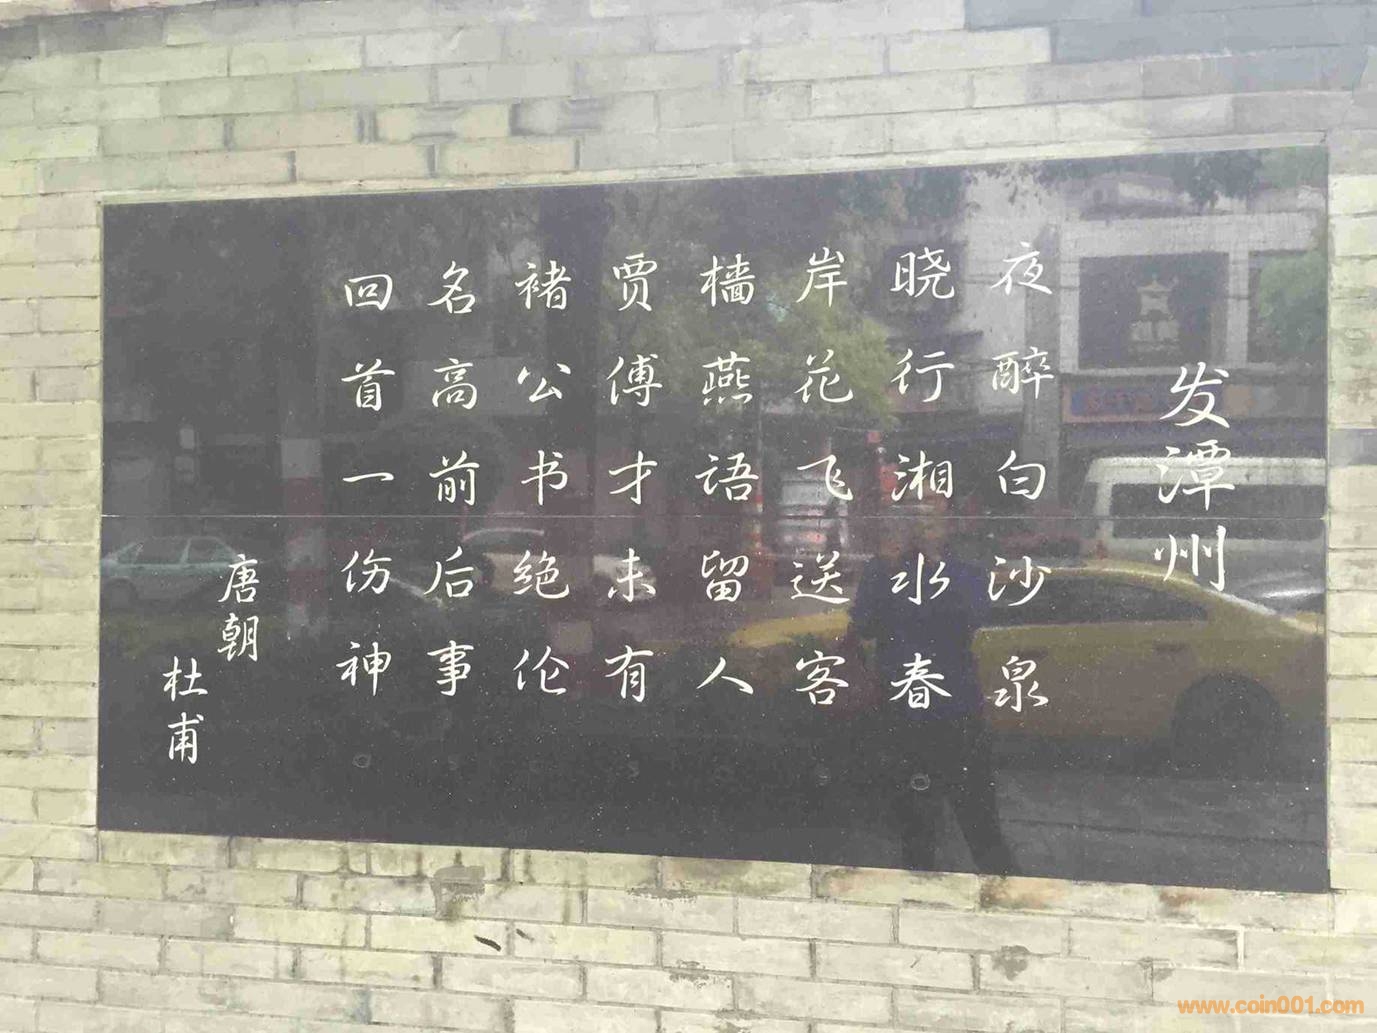 发潭州
夜醉白沙泉
晓行湘水春
岸花飞送客
樯燕语留人
贾傅才未有
褚公书绝伦
名高前后事
回首一伤神
唐朝
杜甫
www.coin001.com